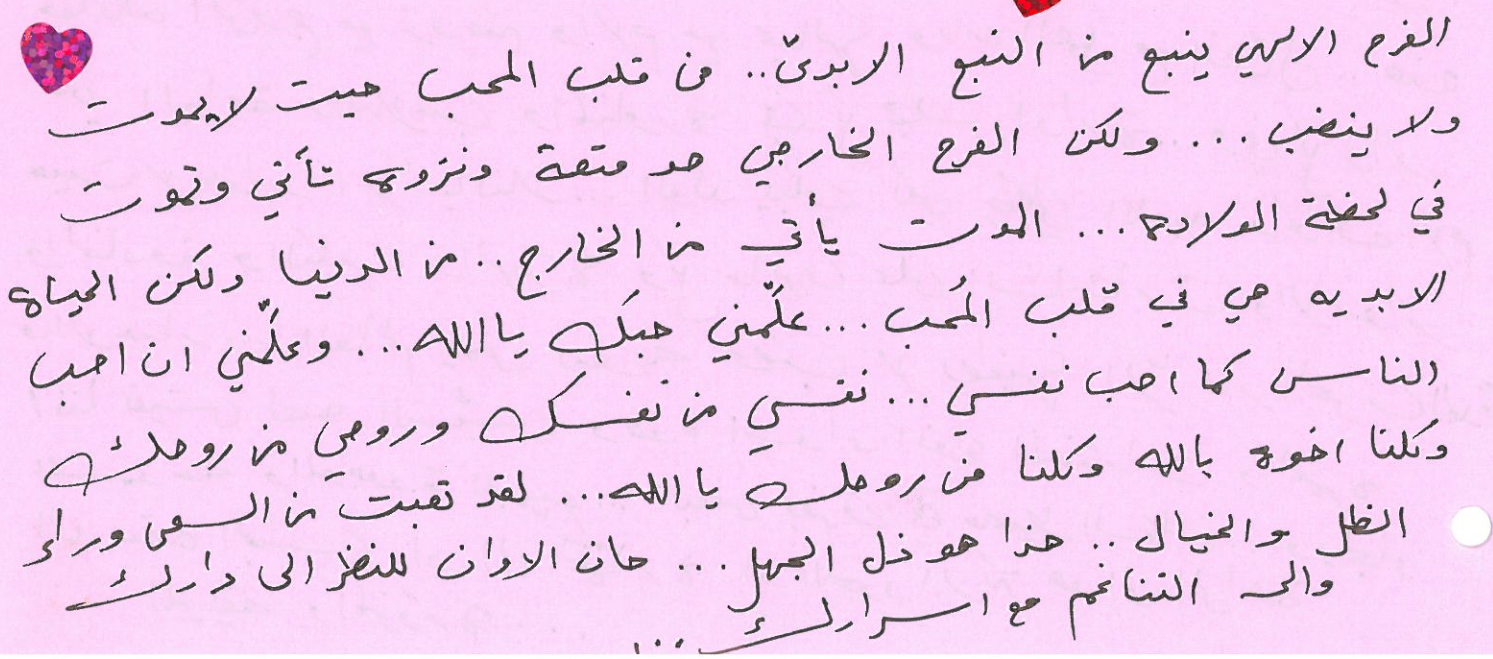 الفرح الالهي ينبع من النبع الابديّ.. من قلب المحب حيث لا يموت
ولا ينضب... ولكن الفرح الخارجي هو متعة ونزوه تأتي وتموت
في لحظة الولاده... الموت يأتي من الخارج.. من الدنيا ولكن الحياه
الابديه هي في قلب المُحب... علّمني حبك يا الله... وعلّمني ان احب
الناس كما احب نفسي... نفسي من نفسك وروحي من روحك
وكلنا اخوه بالله وكلنا من روحك يا الله... لقد تعبت من السعي وراء
الظل والخيال.. هذا هو ذل الجهل... حان الاوان للنظر الى دارك
والى التناغم مع اسرارك...